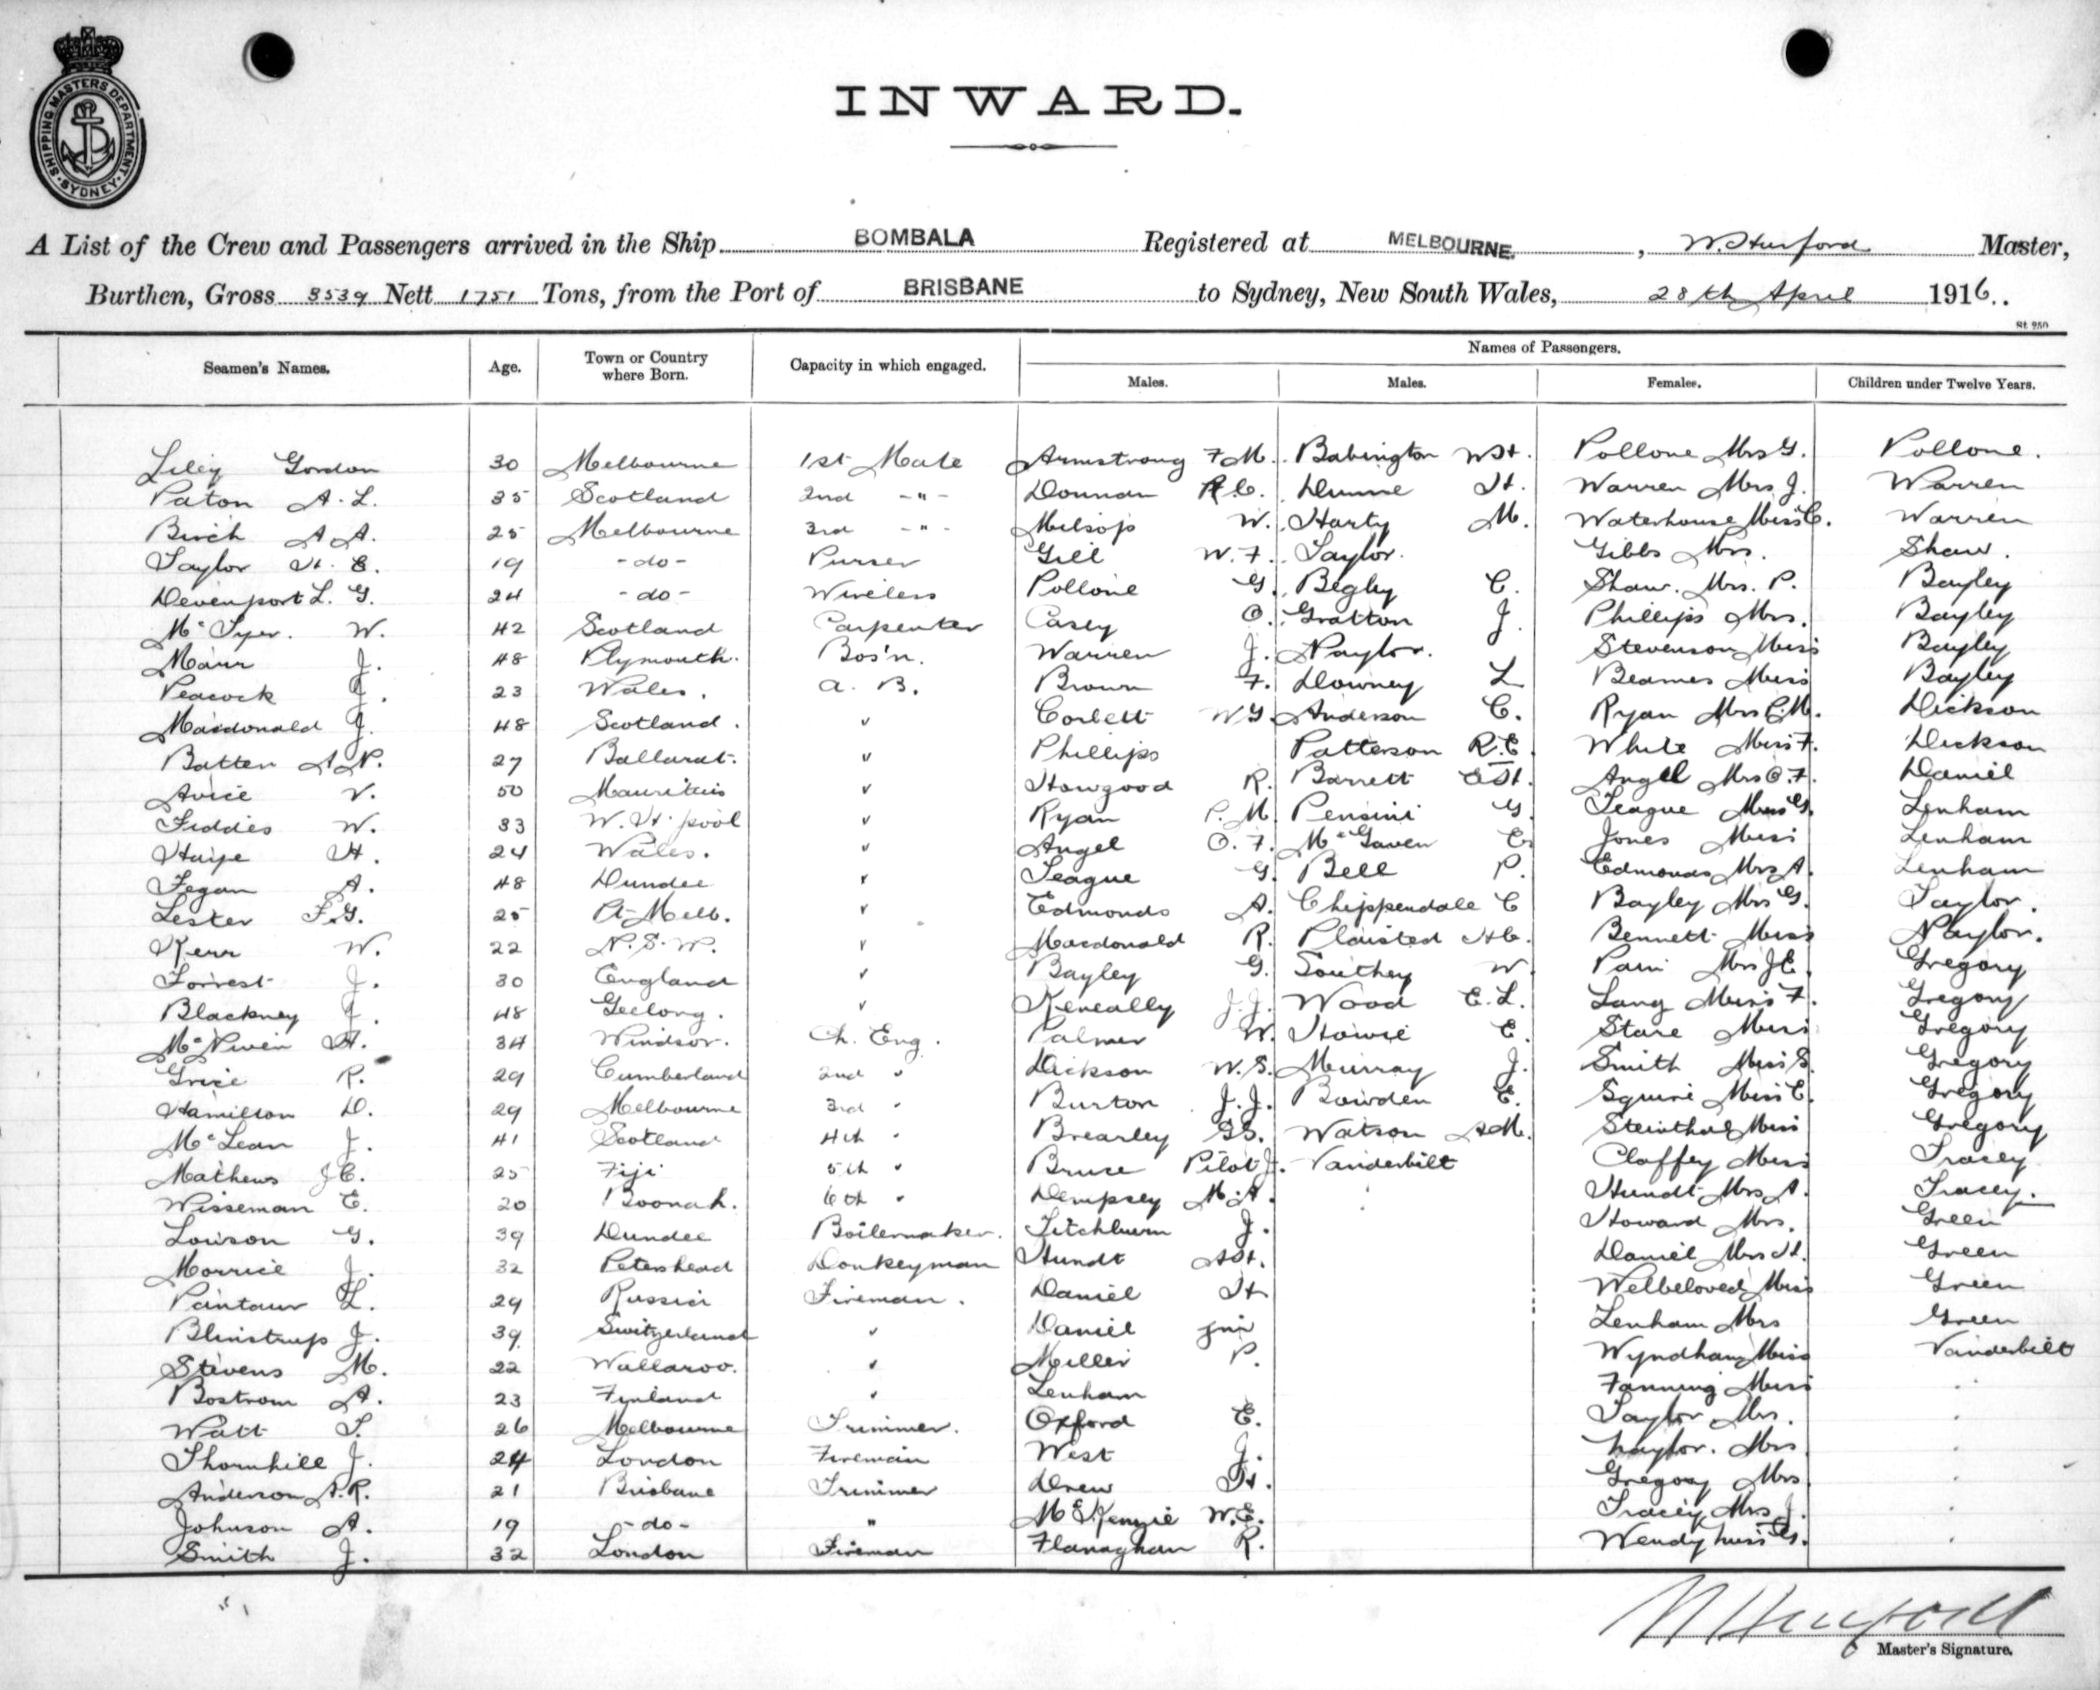 SHIPPING MASTERS DEPARTMENT. SYDNEY
INWARD.
A List of the Crew and Passengers arrived in the Ship BOMBALA Registered at MELBOURNE, W. Hurford Master,
Burthen, Gross 3539 Nett 1751 Tons, from the Port of BRISBANE to Sydney, New South Wales, 28th April 1916.
St 250
Seamen's Names. Age. Town or Country where Born. Capacity in which engaged. Names of Passengers.
Males. Males. Females. Children under Twelve Years.
Liley Gordon 30 Melbourne 1st Mate Armstrong F M. Babington W H. Pollone Mrs G. Pollone.
Paton A. L. 35 Scotland 2nd -"- Dounan R C. Dunne H. Warren Mrs J. Warren
Birch A A. 25 Melbourne 3rd -"- Milsop W. Harty M. Waterhouse Miss C. Warren
Taylor H. E. 19 -do- Purser Gill W. F. Taylor. Gibbs Mrs. Shaw.
Devenport L. G. 24 -do- Wireless Pollone G. Begley C. Shaw. Mrs. P. Bayley
W. 42 Scotland Carpenter Casey O. Gratton J. Phillips Mrs. Bayley
Marr J. 48 Plymouth. Bos'n. Warren J. Naylor. Stevenson Miss Bayley
Peacock J. 23 Wales. A. B. Brown F. Downey L Beames Miss Bayley
Macdonald J. 48 Scotland. " Corbett W G. Anderson C. Ryan Mrs P.M. Dickson
Batten A N. 27 Ballarat. " Phillips Patterson R. E. White Miss F. Dickson
Avice V. 50 Mauritius " Howgood R. Barrett E H. Angel Mrs O. F. Daniel
Fiddes W. 33 W. H. pool " Ryan P. M. Pensini G. Teague Miss G. Lenham
Haipe H. 24 Wales. " Angel O. F. McGaven E Jones Miss Lenham
Fegan A. 48 Dundee " Teague G. Bell P. Edmonds Mrs A. Lenham
Lester F. G. 25 Pt. Melb. " Edmonds A. Chippendale C Bayley Mrs G. Taylor.
Kerr W. 22 N. S. W. " Macdonald R. Plaisted H C. Bennett Miss Naylor.
Forrest J. 30 England " Bayley G. Southey W. Pain Mrs J E. Gregory
Blackney J. 48 Geelong. " Keneally J. J. Wood E. L. Lang Miss F. Gregory
McNiven H. 34 Windsor. Ch. Eng. Palmer W. Howie E. Stare Miss Gregory
Grice R. 29 Cumberland 2nd " Dickson W. S. Murray J. Smith Miss S. Gregory
Hamilton D. 29 Melbourne 3rd " Burton J. J. Bowden E. Squire Miss E. Gregory
McLean J. 41 Scotland 4th " Brearley G S. Watson A M. Steinthal Miss Gregory
Mathews J C. 25 Fiji 5th " Bruce Pilot J. Vanderbilt Claffey Miss Tracey
Wisseman E. 20 Boonah. 6th " Dempsey M. A. Hundt Mrs A. Tracey.
Lowson G. 39 Dundee Boilermaker. Titchburn J. Howard Mrs. Green
Morrice J. 32 Peterhead Donkeyman Hundt A H. Daniel Mrs H. Green
Pantaur L. 29 Russia Fireman. Daniel H Welbeloved Miss Green
Blinstrup J. 39 Switzerland " Daniel jnr Lenham Mrs Green
Stevens M. 22 Wallaroo. " Miller P. Wyndham Miss Vanderbilt
Bostrom A. 23 Finland " Lenham Fanning Miss
Watt T. 26 Melbourne Trimmer. Oxford E. Taylor Mrs.
Thornhill J. 24 London Fireman West J. Naylor. Mrs
Anderson A. R. 21 Brisbane Trimmer Drew H. Gregory Mrs
Johnson A. 19 -do- " McKenzie W. E. Tracey Mrs J.
Smith J. 32 London Fireman Flanaghan R. Wendy Miss G.
W Hurford
Master's Signature.